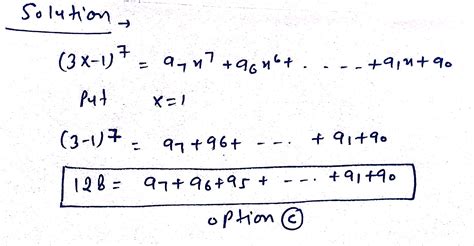 Solution →
(3x-1)⁷ = a₇x⁷ + a₆x⁶ + . . . - - + a₁x + a₀
Put x=1
(3-1)⁷ = a₇ + a₆ + - - - . + a₁ + a₀
128 = a₇ + a₆ + a₅ + - - - . + a₁ + a₀
option (c)